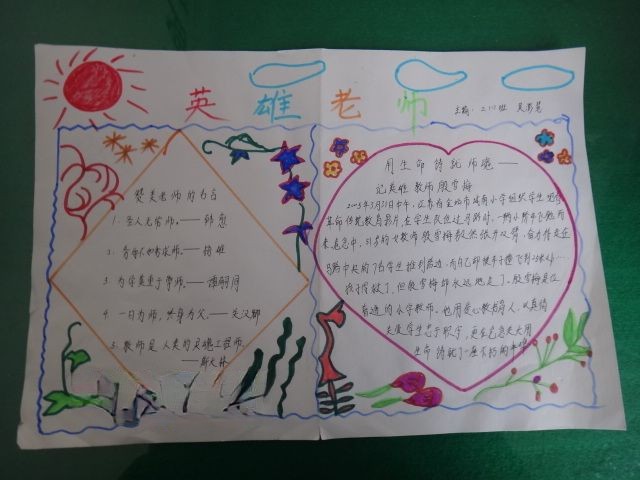 英雄老师
主编：二（1）班
赞美老师的名言
1、圣人无常师。——韩愈
2、务学不如务求师。——扬雄
3、为学莫重于尊师。——谭嗣同
4、一日为师，终身为父。——关汉卿
5、教师是人类的灵魂工程师。
——斯大林
用生命铸就师魂——
记英雄教师殷雪梅
2005年3月31日中午，江苏省金坛市城南小学组织学生观看
革命传统教育影片，在学生队伍过马路时，一辆小轿车飞驰而
来危急中，51岁的女教师殷雪梅毅然张开双臂，奋力将走在
马路中央的7名学生推到路边，而自己却被车子撞飞到25米外…
孩子得救了，但殷雪梅却永远地走了。殷雪梅是位
普通的小学教师，
关爱学生忠于职守，更在危急关头用
生命铸就了一座不朽的丰碑